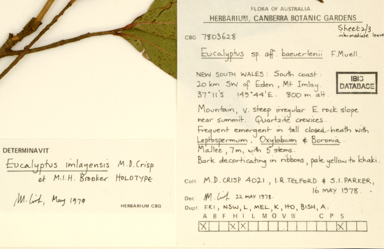 FLORA OF AUSTRALIA
HERBARIUM, CANBERRA BOTANIC GARDENS
Sheet 2/3
intermediate leaves
CBG 7803628
Eucalyptus sp. aff. baeuerlenii F. Muell.
NEW SOUTH WALES: South coast:
20 km SW of Eden, Mt Imlay.
37°11'S 149°44'E. 800 m alt.
IBIS
DATABASE
Mountain, v. steep irregular E. rock slope
near summit. Quartzite crevices.
Frequent emergent in tall closed-heath with
Leptospermum, Oxylobium & Boronia.
Mallee, 7m, with 5 stems.
Bark decorticating in ribbons, pale yellow to khaki.
Coll. M.D. CRISP 4021, I.R. TELFORD & S.I. PARKER,
16 MAY 1978.
Det. 22 MAY 1978.
Dupl. FRI, NSW, L, MEL, K, HO, BISH, A.
A B F H I L M O V B C P S
X X X X
DETERMINAVIT
Eucalyptus imlayensis M.D. Crisp
et M.I.H. Brooker HOLOTYPE
May 1979
HERBARIUM CBG